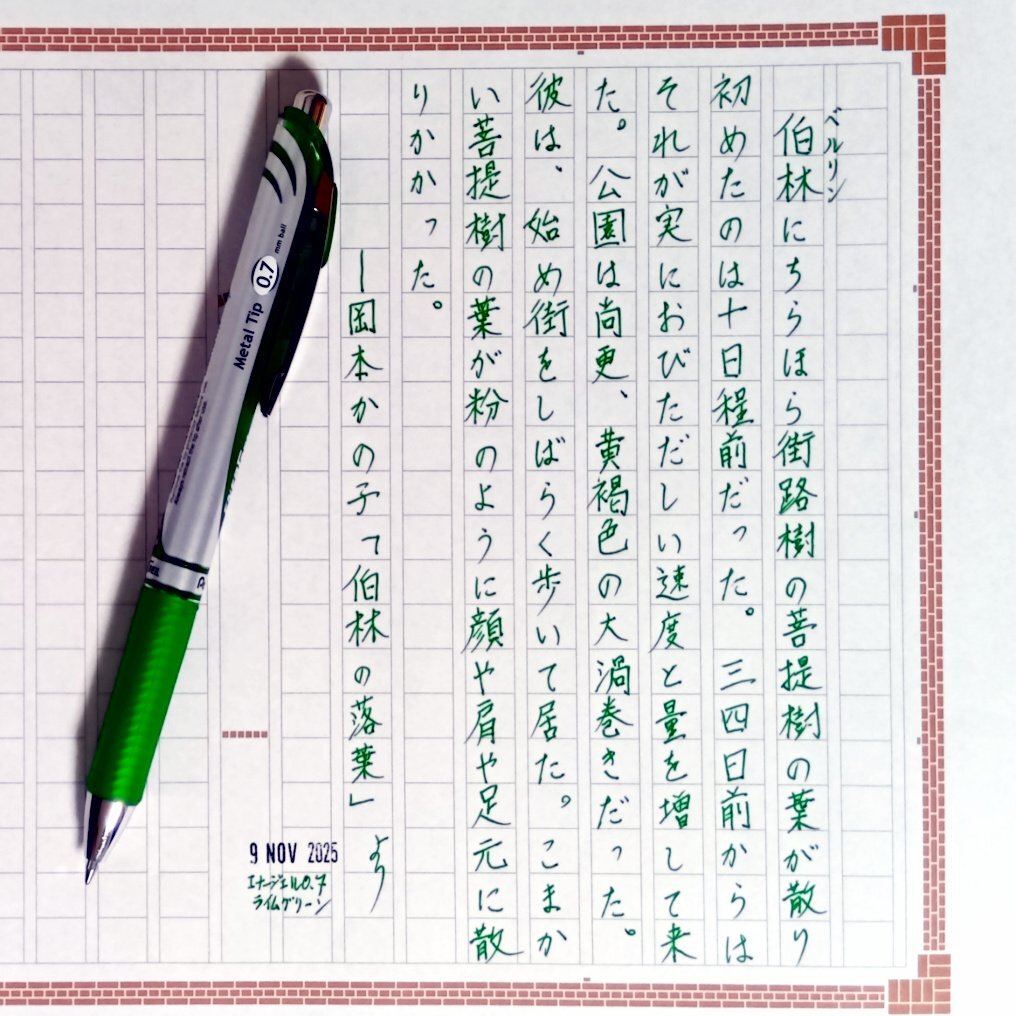 ベルリン
伯林にちらほら街路樹の菩提樹の葉が散り
初めたのは十日程前だった。三四日前からは
それが実におびただしい速度と量を増して来
た。公園は尚更、黄褐色の大渦巻きだった。
彼は、始め街をしばらく歩いて居た。こまか
い菩提樹の葉が粉のように顔や肩や足元に散
りかかった。
―岡本かの子「伯林の落葉」より
9 NOV 2025
エナージェル0.7
ライムグリーン
Metal Tip 0.7 mm ball